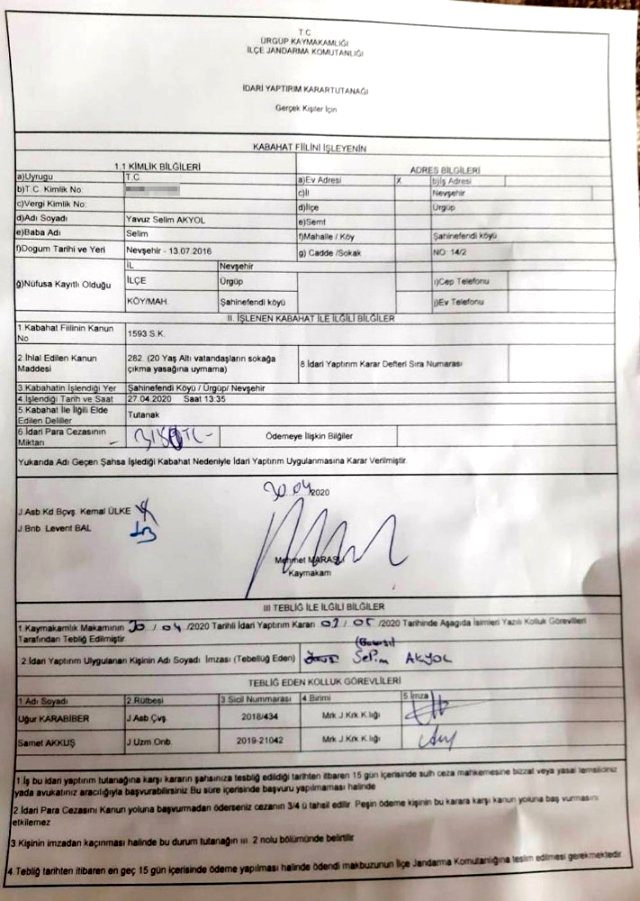 T.C.
ÜRGÜP KAYMAKAMLIĞI
İLÇE JANDARMA KOMUTANLIĞI
İDARİ YAPTIRIM KARARTUTANAĞI
Gerçek Kişiler İçin
KABAHAT FİİLİNİ İŞLEYENİN
1.1 KİMLİK BİLGİLERİ
ADRES BİLGİLERİ
a)Uyruğu T.C. a)Ev Adresi X b)İş Adresi
b)T.C. Kimlik No: c)İl Nevşehir
c)Vergi Kimlik No: d)İlçe Ürgüp
d)Adı Soyadı Yavuz Selim AKYOL e)Semt
e)Baba Adı Selim f)Mahalle / Köy Şahinefendi köyü
f)Dogum Tarihi ve Yeri Nevşehir - 13.07.2016 g) Cadde /Sokak NO: 14/2
ğ)Nüfusa Kayıtlı Olduğu İL Nevşehir
İLÇE Ürgüp ı)Cep Telefonu
KÖY/MAH. Şahinefendi köyü i)Ev Telefonu
II. İŞLENEN KABAHAT İLE İLGİLİ BİLGİLER
1.Kabahat Fiilinin Kanun No 1593 S.K.
2.İhlal Edilen Kanun Maddesi 282. (20 Yaş Altı vatandaşların sokağa çıkma yasağına uymama) 8 İdari Yaptırım Karar Defteri Sıra Numarası
3.Kabahatin İşlendiği Yer Şahinefendi Köyü / Ürgüp/ Nevşehir
4.İşlendiği Tarih ve Saat 27.04.2020 Saat 13:35
5.Kabahat İle İlgili Elde Edilen Deliller Tutanak
6.İdari Para Cezasının Miktarı Ödemeye İlişkin Bilgiler
Yukarıda Adı Geçen Şahsa İşlediği Kabahat Nedeniyle İdari Yaptırım Uygulanmasına Karar Verilmiştir
30.04/2020
J.Asb Kd Bçvş. Kemal ÜLKE
J.Bnb. Levent BAL
Mehmet MARAŞLI
Kaymakam
III TEBLİĞ İLE İLGİLİ BİLGİLER
1.Kaymakamlık Makamının 30 / 04 /2020 Tarihli İdari Yaptırım Kararı 01 / 05 /2020 Tarihinde Aşağıda İsimleri Yazılı Kolluk Görevlileri
Tarafından Tebliğ Edilmiştir.
(Babası)
2.İdari Yaptırım Ulygulanan Kişinin Adı Soyadı İmzası (Tebellüğ Eden) Selim AKYOL
TEBLİĞ EDEN KOLLUK GÖREVLİLERİ
1 Adı Soyadı 2.Rütbesi 3 Sicil Nummarası 4 Birimi 5 İmza
Uğur KARABİBER J.Asb Çvş. 2018/434 Mrk J.Krk K.lığı
Samet AKKUŞ J.Uzm.Onb. 2019-21042 Mrk J.Krk K.lığı
1.İş bu idari yaptırım tutanağına karşı kararın şahsınıza tesbliğ edildiği tarihten itibaren 15 gün içerisinde sulh ceza mahkemesine bizzat veya yasal temsilciniz
yada avukatınız aracılığıyla başvurabilirsiniz Bu süre içerisinde başvuru yapılmaması halinde
2 İdari Para Cezasını Kanun yoluna başvurmadan öderseniz cezanın 3/4 ü tahsil edilir. Peşin ödeme kişinin bu karara karşı kanun yoluna baş vurmasını
etkilemez
3 Kişinin imzadan kaçınması halinde bu durum tutanağın III. 2 nolu bölümünde belirtilir
4.Tebliğ tarihten itibaren en geç 15 gün içerisinde ödeme yapılması halinde ödendi makbuzunun İlçe Jandarma Komutanlığına teslim edilmesi gerekmektedir.